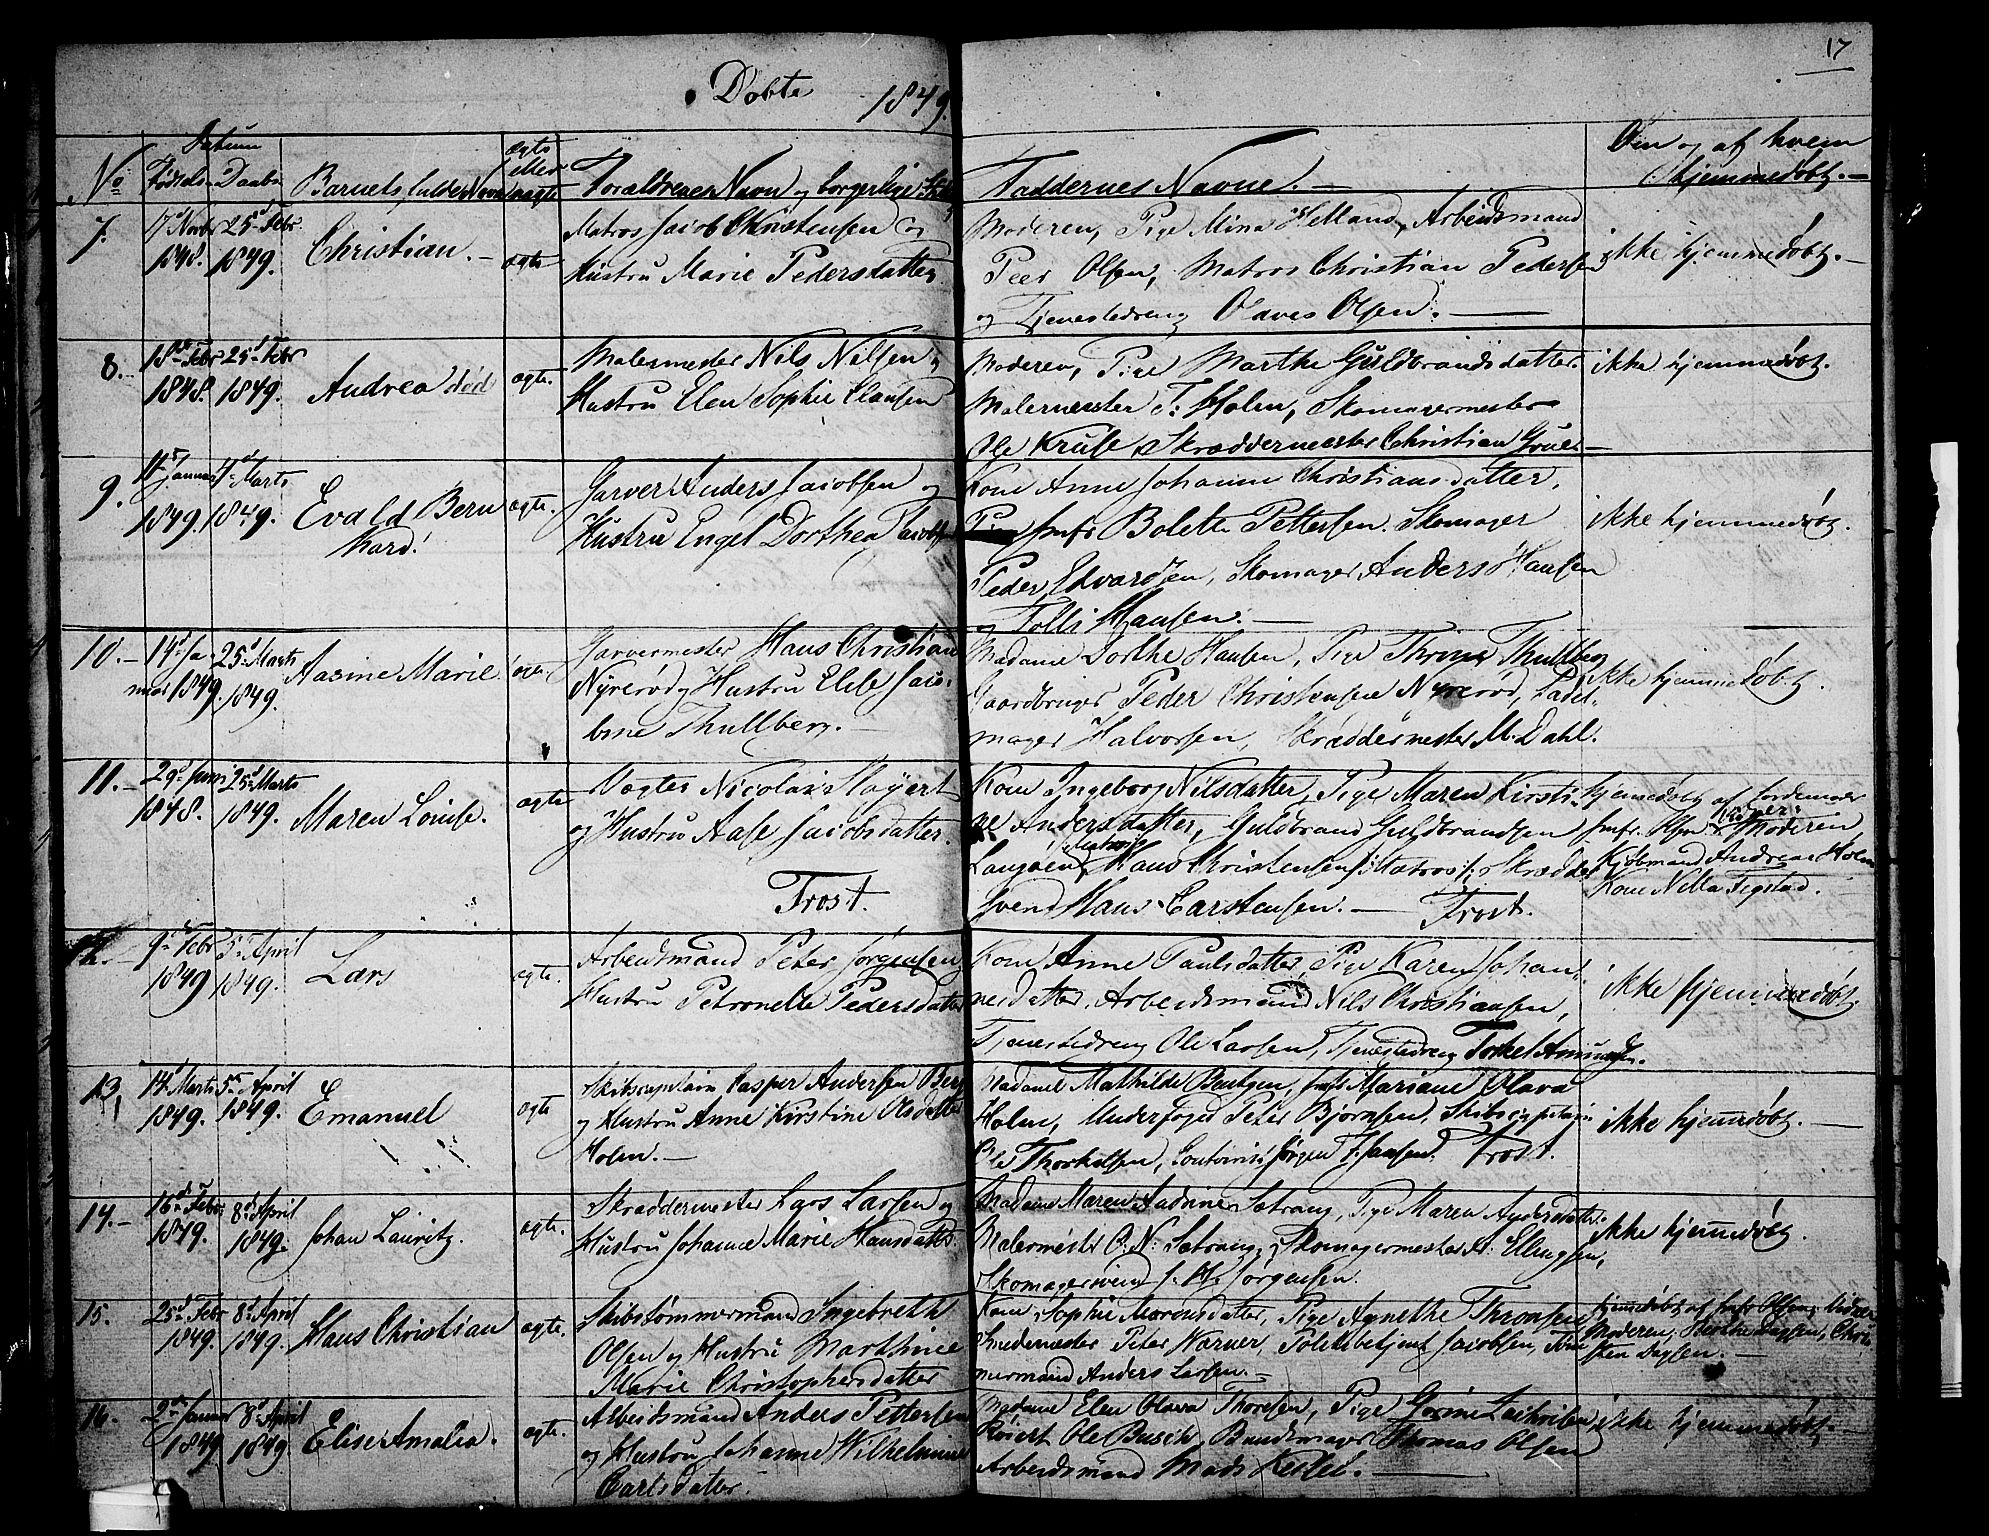 17
Døbte 1849.
Datum
No Fødsels Daabs Barnets fulde Navn ægte eller uægte Forældrenes Navn og borgerlige Faddernes Navne. — Om og af hvem hjemmedøbt. —
7. 17d Novbr 1848. 25d Febr. 1849. Christian. — ægte
Matros Jacob Christensen og
Hustru Marie Pedersdatter
Moderen, Pige Mina Helland, Arbeidsmand
Peer Olsen, Matros Christian Pedersen
og Tjenestedreng Olaves Olsen. —
ikke hjemmedøbt. —
8. 18de Febr 1848. 25d Febr 1849. Andrea død ægte.
Malermester Nils Nilsen og
Hustru Elen Sophie Clausen
Moderen, Pige Marthe Guldbrandsdatter.
Malermester T. Holen, Skomagermester
Ole Kruse, Skræddermester Christian Grue. —
ikke hjemmedøbt.
9. 11d Januar 1849. 4d Marts 1849. Evald Bern
hard! ægte.
Garver Anders Jacobsen og
Hustru Engel Dorthea
Kone Anne Johanne Christiansdatter,
Jmfr Bolette Pettersen. Skomager
Peder Edvardsen, Skomager Anders Hansen
og Hansen. —
ikke hjemmedøbt.
10. — 14d Ja-
nuar 1849. 25d Marts 1849. Aasine Marie ægte
Garvermester Hans Christian
Nyrerød og Hustru Else Jaco-
bine Thullberg. —
Madame Dorthe Hansen, Pige Thrine Thullberg
Gaardbruger Peder Christensen Nyrerød, Sadel-
mager Halvorsen, Skræddermester M. Dahl.
ikke hjemmedøbt.
11. — 29d Juni 1848. 25d Marts 1849. Maren Louise. ægte
Vogter Nicolai
og Hustru Aase Jacobsdatter.
Frost.
Kone Ingeborg Nilsdatter, Pige Maren Kirsti-
ne Andersdatter, Guldbrand Guldbrandsen
Langøen, Hans Christensen, Matros, Skrædder
svend Hans Carstensen. — Frost.
hjemmedøbt af Jordemoder
jmfr. Olsen Vidner: Moderen,
Kjøbmand Andreas Holm
Kone Nilla Tigstad.
12. 9d Febr 1849 5d April 1849. Lars ægte.
Arbeidsmand Peter Jørgensen
Hustru Petronelle Pedersdatter
Kone Anne Paulsdatter, Pige Karen Johan-
nesdatter, Arbeidsmand Nils Christiansen,
Tjenestedreng Ole Larsen, Tjenestedreng Torkel Amundsen.
ikke hjemmedøbt.
13. 14d Marts 1849. 5te April 1849. Emanuel ægte
Skibscaptain Casper Andersen Berg
og Hustru Anne Kirstine Olsdatter
Holm. —
Madame Mathilde Bentzen, jmfr Mariane Olava
Holm, Underfoged Peter Bjørnsen, Skibscaptain
Ole Thorkelsen, Jørgen J. Jansen. Frost.
ikke hjemmedøbt. —
14. — 16d Febr. 1849. 8d April 1849. Johan Lauritz. ægte.
Skræddermester Lars Larsen og
Hustru Johanne Marie Hansdatter.
Madame Maren Andrine Sætrang, Pige Maren Andersdatter.
Malermester O. N. Sætrang, Skomagermester A. Ellingsen,
Skomagersvend J. H. Jørgensen.
ikke hjemmedøbt.
15. 25d Febr 1849. 8d April 1849. Hans Christian ægte.
Skibstømmermand Ingebreth
Olsen og Hustru Marthine
Marie Christophersdatter
Kone Sophie Morensdatter, Pige Agnethe Thronsen
Smedemester Peter Warner, Politibetjent Jacobsen, Tøm
mermand Anders Larsen. —
hjemmedøbt af jmfr Olsen, Vidner
Moderen, Berthe Dagsen, Chri-
sten Dagsen. —
16. 2den Januar 1849 8d April 1849. Elise Amalia. ægte.
Arbeidsmand Anders Pettersen
og Hustru Johanne Wilhelmine
Carlsdatter.
Madame Elen Olava Thoresen, Pige Gorine Zachrisen
Ole Busch, Bundtmager Thomas Olsen
Arbeidsmand Mads Keisel. —
ikke hjemmedøbt. —